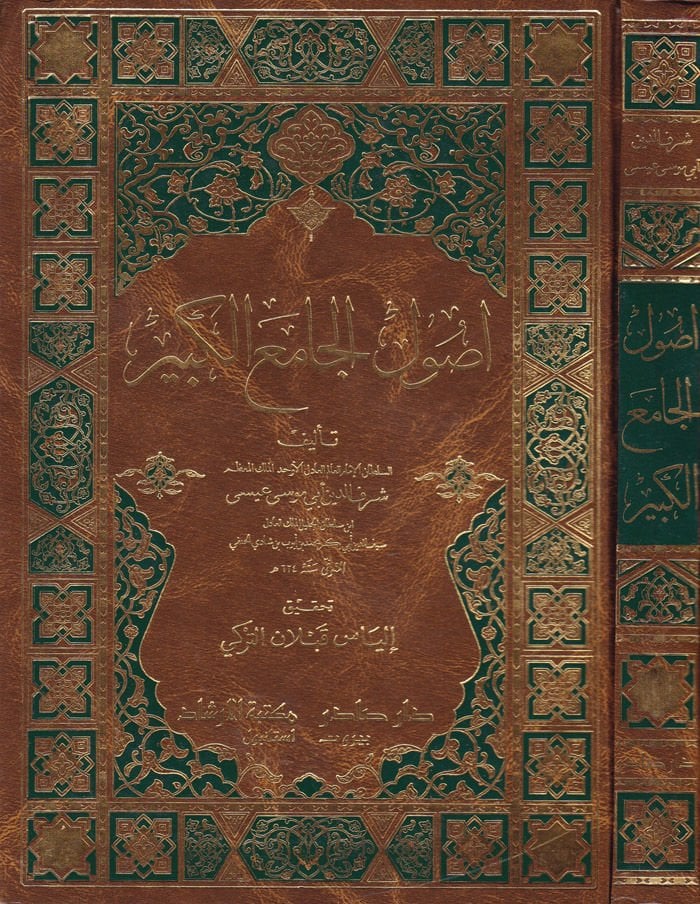 أصول الجامع الكبير
تأليف
السلطان الإمام العالم العادل الأوحد الملك المعظم
شرف الدين أبي موسى عيسى
ابن سلطان الجليل الملك العادل
سيف الدين أبي بكر محمد بن أيوب بن شادي الحنفي
المتوفى سنة ٦٢٤ هـ
تحقيق
إلياس قبلان التركي
دار صادر مكتبة الإرشاد
بيروت استانبول
شرف الدين
أبي موسى عيسى
أصول
الجامع
الكبير